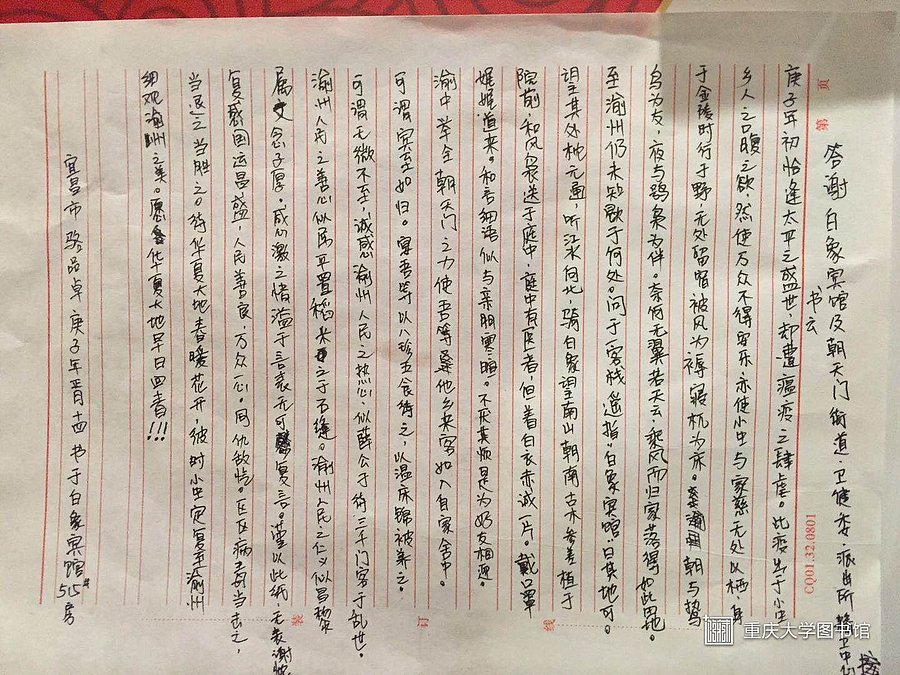 答谢白象宾馆及朝天门街道、卫健委、派出所
书云
庚子年初恰逢太平之盛世,却遭瘟疫之肆虐。此疫出于小虫
乡人之口腹之欲,然使万众不得安乐,亦使小虫与家慈无处以栖身
于金陵时行于野无处留宿被风为褥寝杭为床。朝与鹫
鸟为友,夜与鸮枭为伴。奈何无翼若天云,乘风而归家落得如此田地。
至渝州仍未知歇于何处。问于一客栈遥指"白象宾馆"曰其地可。
望其处枕元通,听江水向北,骑白象望南山朝南古木参差植于
院前,和风袅送于庭中,庭中有医者但着白衣赤诚一片。戴口罩
娓娓道来。和言细语似与亲朋寒暄。不厌其烦是为好友相迎。
渝中举全朝天门之力使吾等他乡来客如入自家舍中。
可谓宾至如归。宴吾等以八珍五食待之,以温床锦被养之。
可谓无微不至,诚感渝州人民之热心似薛公于待三千门客于乱世。
渝州人民之善心似屈平置稻米于石缝。渝州人民之仁义似昌黎
属文念子厚。感激之情溢于言表无可复言。谨以此纸,无表谢
复感国运昌盛,人民善良,万众一心。同仇敌忾。区区病毒当去之,
当退之当胜之。待华夏大地春暖花开,彼时小虫定复至渝州
细观渝州之美。愿华夏大地早日回春!!!
宜昌市骆品卓庚子年正月十四书于白象宾馆
515#房
第
页
CQ01.32.0801
装
订
线
重庆大学图书馆